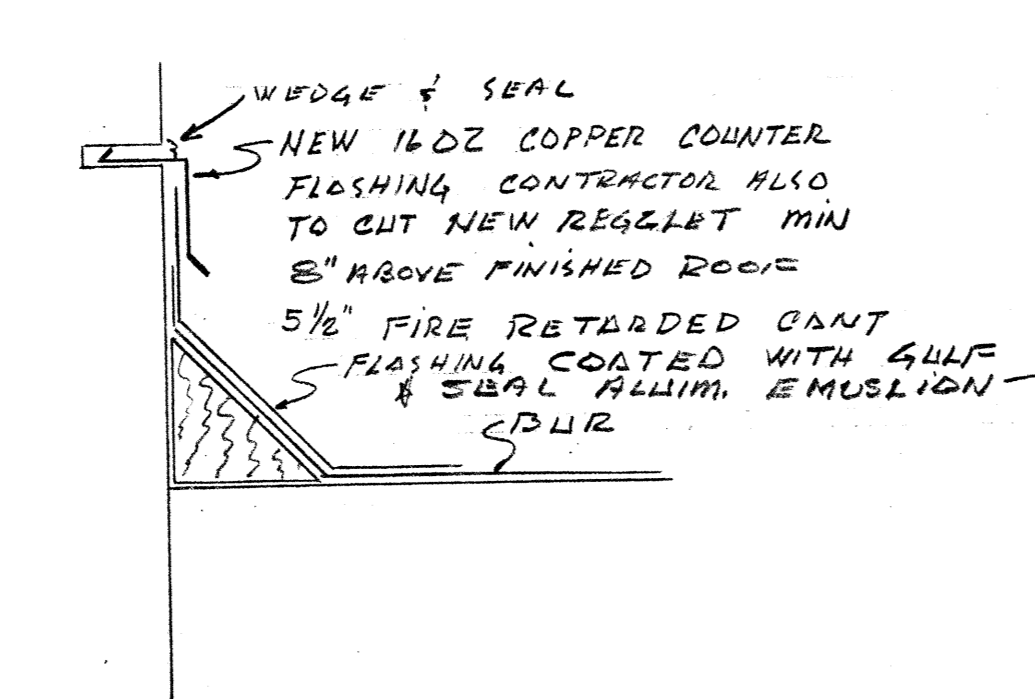 WEDGE & SEAL
NEW 16 OZ COPPER COUNTER
FLASHING CONTRACTOR ALSO
TO CUT NEW REGGLET MIN
8" ABOVE FINISHED ROOF
5 1/2" FIRE RETARDED CANT
FLASHING COATED WITH GULF
& SEAL ALUIM. EMUSLION
BUR